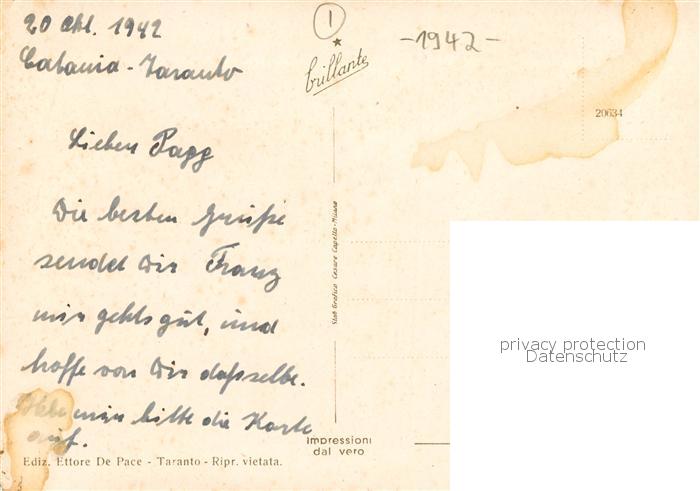 20 Okt. 1942
Catania - Taranto
Lieber Papp
Die besten Grüße
sendet Dir Franz
mir gehts gut, und
hoffe von Dir daßselbe.
Hebe mir bitte die Karte
auf.
Ediz. Ettore De Pace - Taranto - Ripr. vietata.
1
brillante
- 1942 -
20634
Stab Grafico Cesare Capello - Milano
impressioni
dal vero
privacy protection
Datenschutz